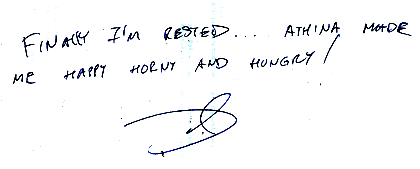 FINALLY I'M RESTED... ATHINA MADE
ME HAPPY HORNY AND HUNGRY!